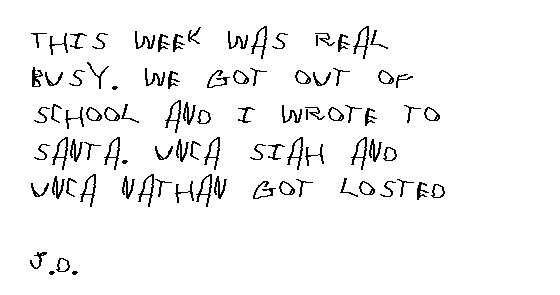 THIS WEEK WAS REAL
BUSY. WE GOT OUT OF
SCHOOL AND I WROTE TO
SANTA. UNCA SIAH AND
UNCA NATHAN GOT LOSTED
J.D.